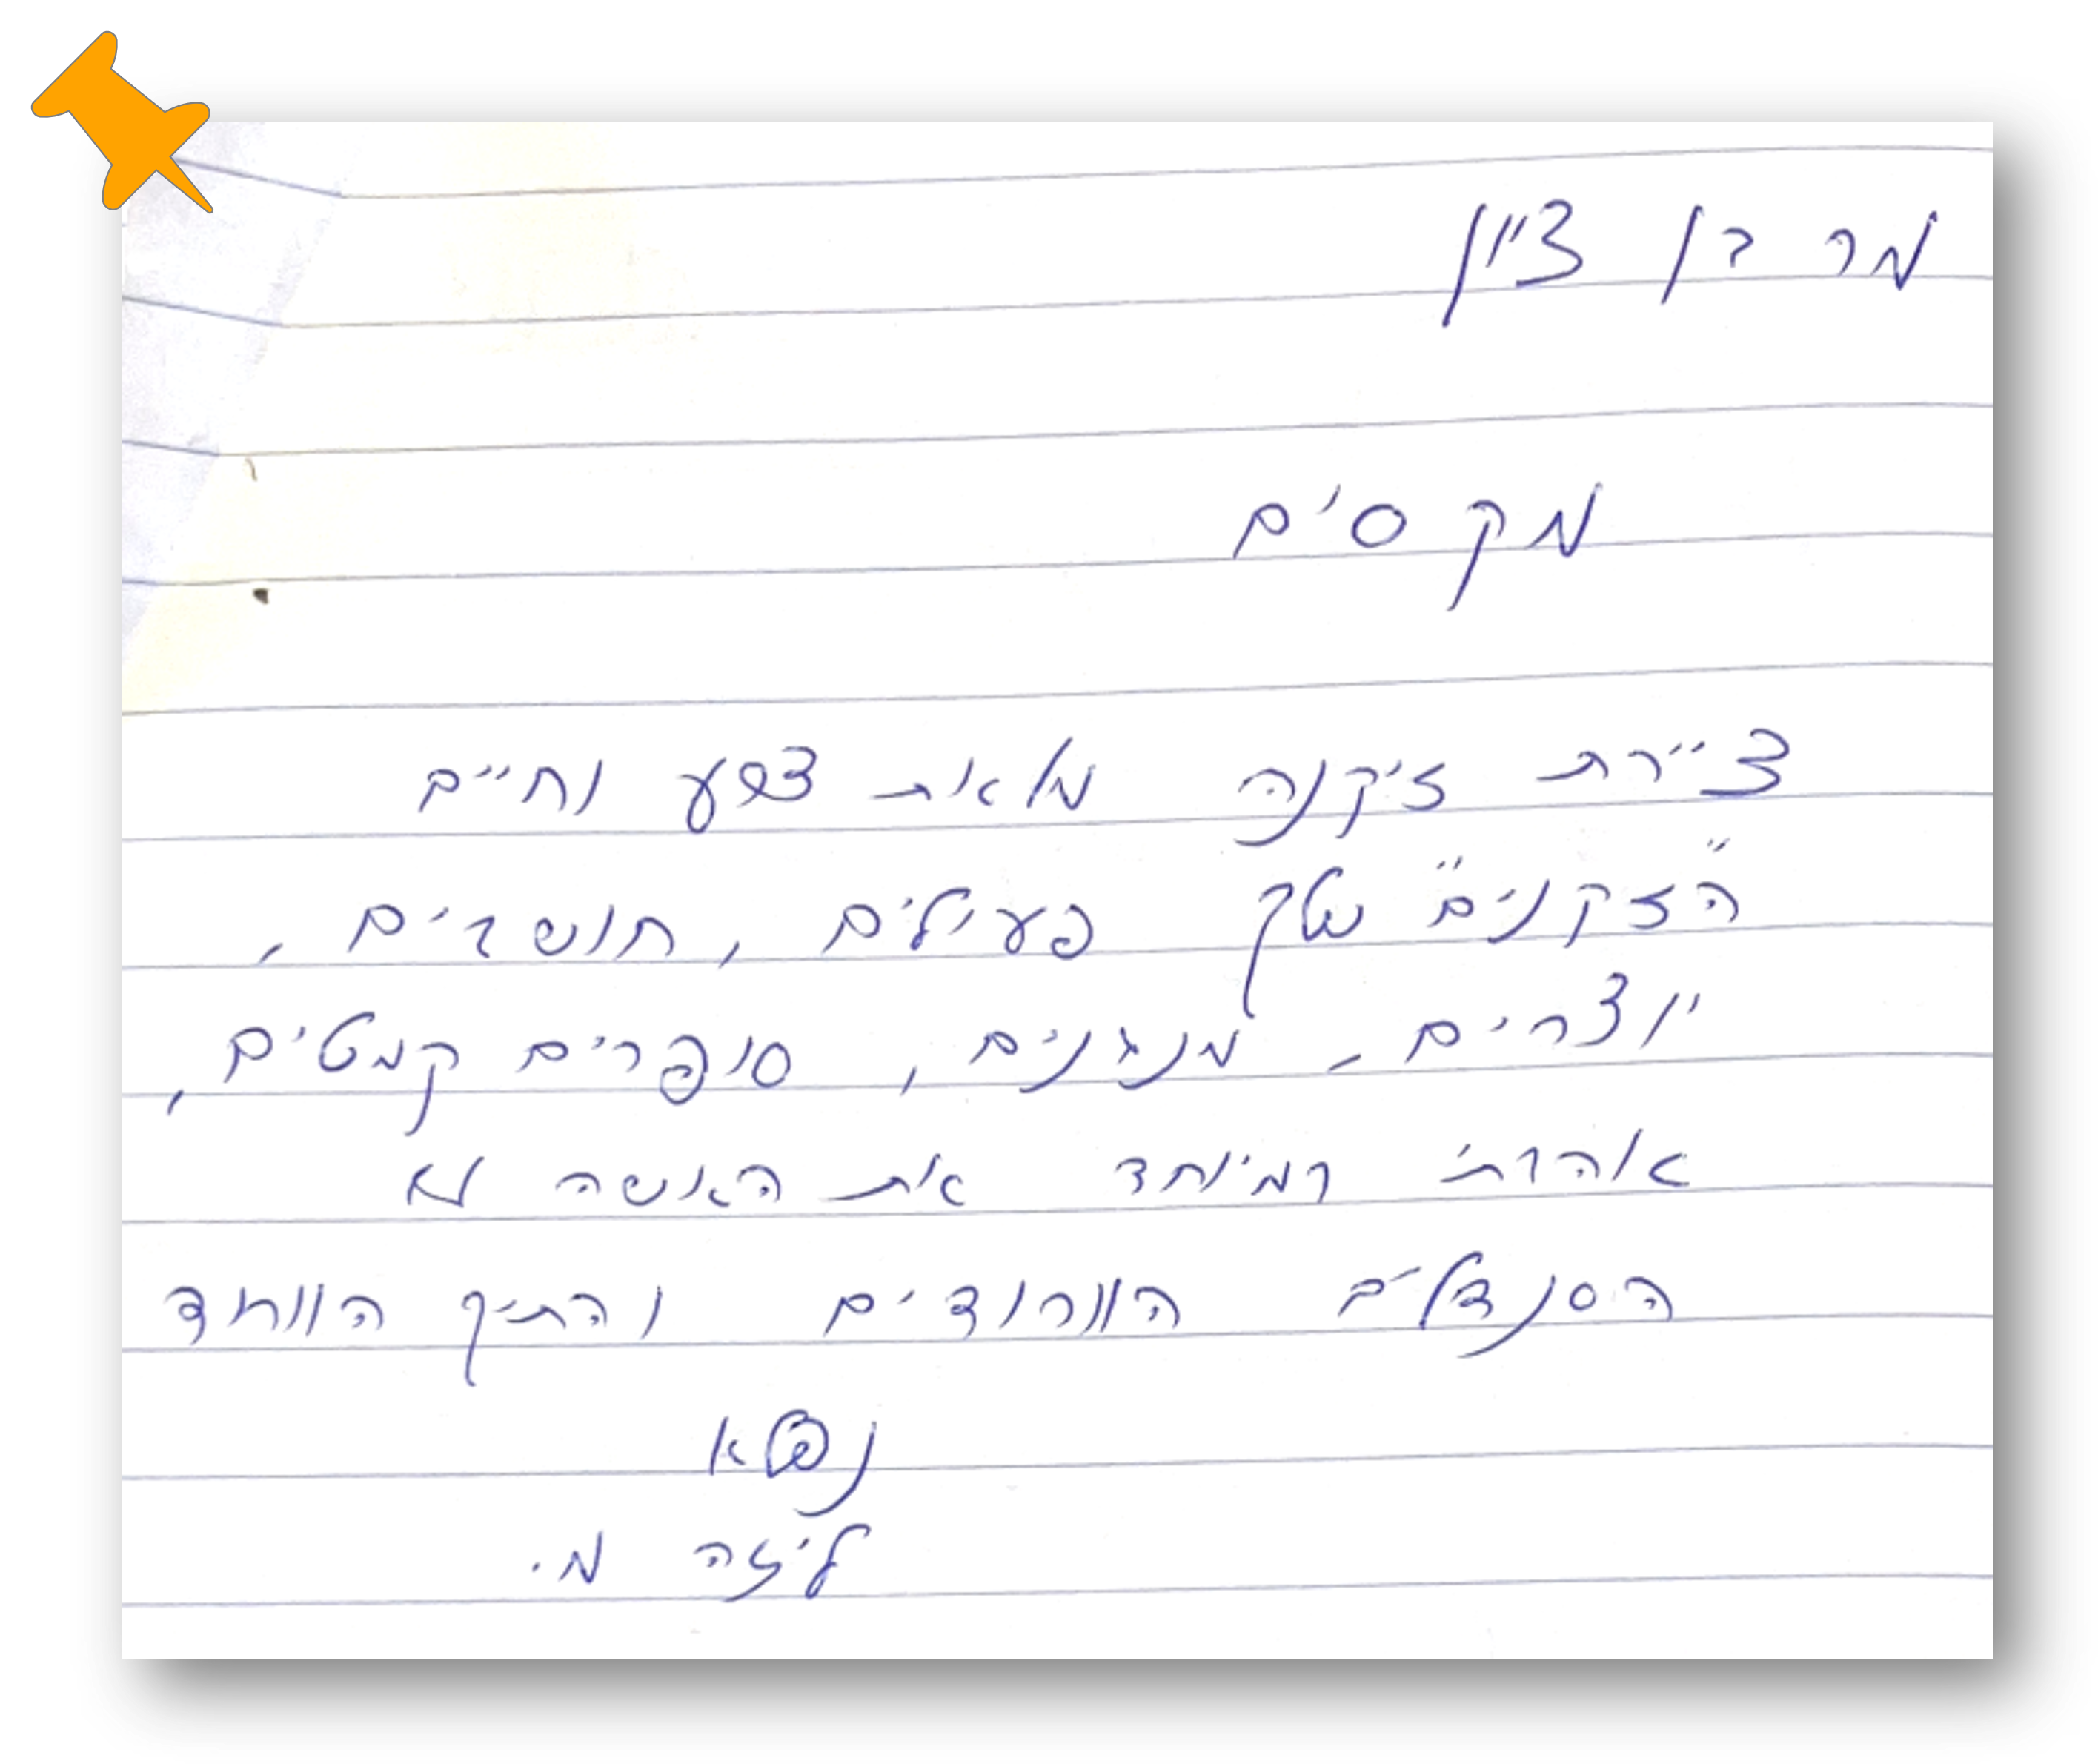 מר בן ציון
מקסים
ציירת זיקנה מלאת צבע וחיים
"הזקנים" שלך פעילים, חושבים,
יוצרים, מנגנים, סופרים קמטים,
אהבתי במיוחד את האשה לא
הסנדלים הוורודים והתיק הוורוד
נפלא
ליזה מ.